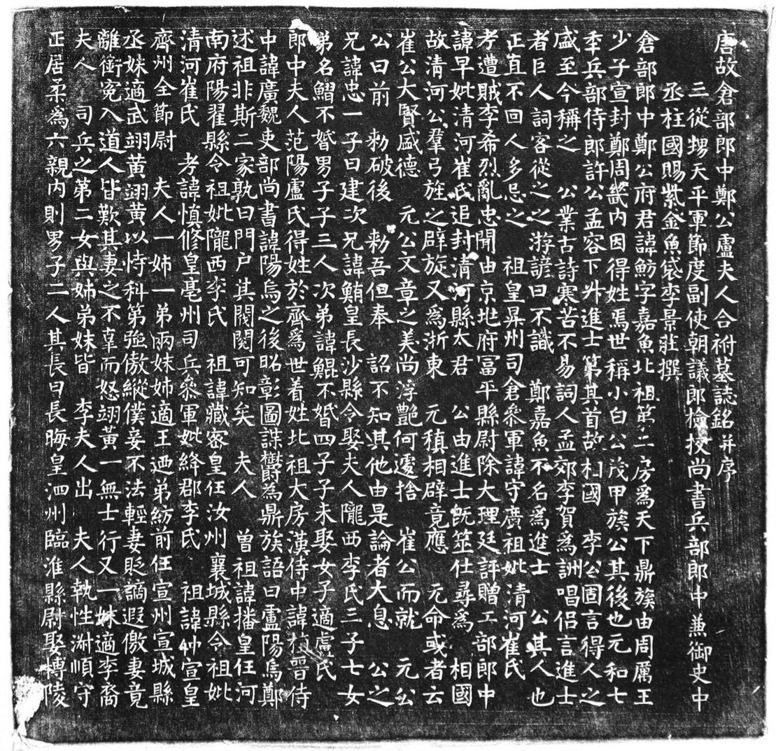 唐故倉部郎中鄭公盧夫人合祔墓誌銘并序
三從甥天平軍節度副使朝議郎檢挍尚書兵部郎中兼御史中
丞柱國賜紫金魚袋李景莊撰
倉部郎中鄭公府君諱魴字嘉魚北祖第二房為天下鼎族由周厲王
少子宣封鄭周畿內因得姓焉世稱小白公茂甲族公其後也元和七
季兵部侍郎許公孟容下升進士第其首故相國 李公固言得人之
盛至今稱之 公業古詩寒苦不易詞人孟郊李賀為訓唱侶言進士
者巨人詞客從之之游諺曰不識 鄭嘉魚不名為進士 公其人也
正直不回人多忌之 祖皇昇州司倉參軍諱守廣祖妣清河崔氏
考遭賊李希烈亂忠聞由京地府富平縣尉除大理廷評贈工部郎中
諱早妣清河崔氏追封清河縣太君 公由進士既筮仕尋為 相國
故清河公羣弓旌之辟旋又為浙東 元稹相辟竟應 元命或者云
崔公大賢盛德 元公文章之美尚浮艷何遽捨 崔公而就 元公
公曰前 勑破後 勑吾但奉 詔不知其他由是論者大息 公之
兄諱忠一子曰建次兄諱鮪皇長沙縣令娶夫人隴西李氏三子七女
弟名鰼不婚男子子三人次弟諱鯤不婚四子子未娶女子適盧氏
郎中夫人范陽盧氏得姓於齊為世着姓北祖大房漢侍中諱植晉侍
中諱廣魏吏部尚書諱陽烏之後昭彰圖諜欝為鼎族語曰盧陽烏鄭
述祖非斯二家孰曰門戶其閥閱可知矣 夫人 曾祖諱播皇任河
南府陽翟縣令祖妣隴西李氏 祖諱藏密皇任汝州襄城縣令祖妣
清河崔氏 考諱慎修皇亳州司兵參軍妣絳郡李氏 祖諱仲宣皇
齊州全節尉 夫人一姊一弟兩妹姊適王迺弟紡前任宣州宣城縣
丞妹適武翊黃翊黃以恃科第強傲縱僕妾不法輕妻毀謫遐儌妻竟
離衝寃入道人皆歎其妻之不辜而怒翊黃一無士行又一妹適李裔
夫人 司兵之第二女與姊弟妹皆 李夫人出 夫人執性淑順守
正居柔為六親內則男子二人其長曰長晦皇泗州臨淮縣尉娶博陵